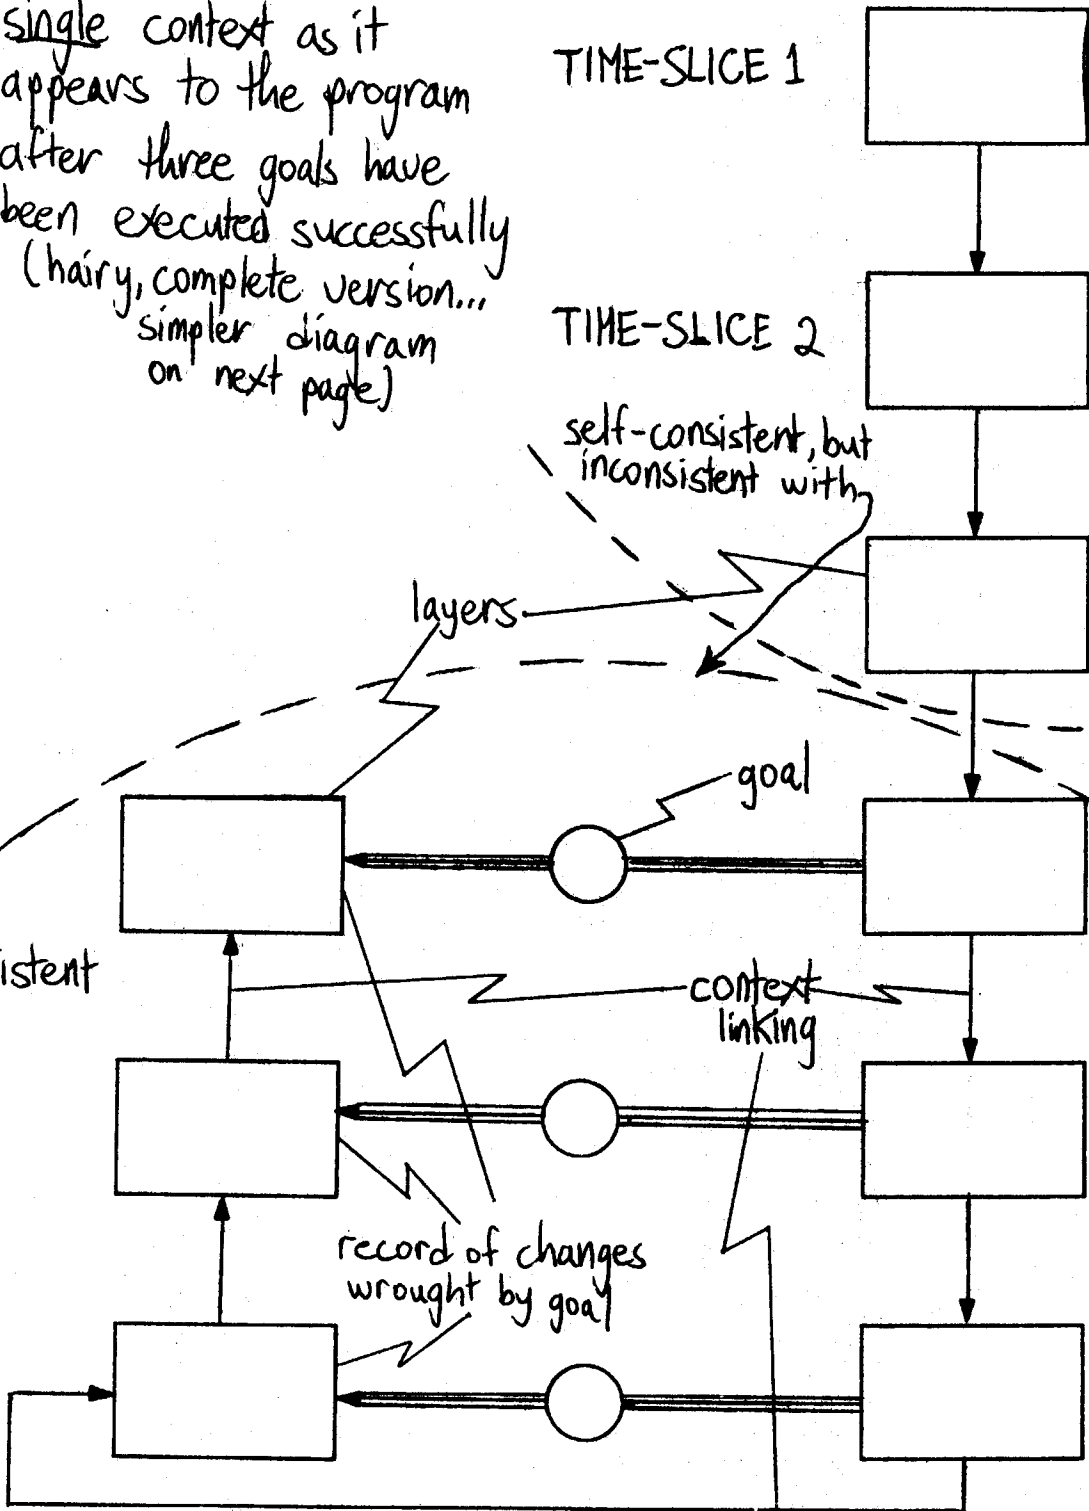 single context as it
appears to the program
after three goals have
been executed successfully
(hairy, complete version...
simpler diagram
on next page)
TIME-SLICE 1
TIME-SLICE 2
self-consistent, but
inconsistent with
layers
goal
istent
context
linking
record of changes
wrought by goal